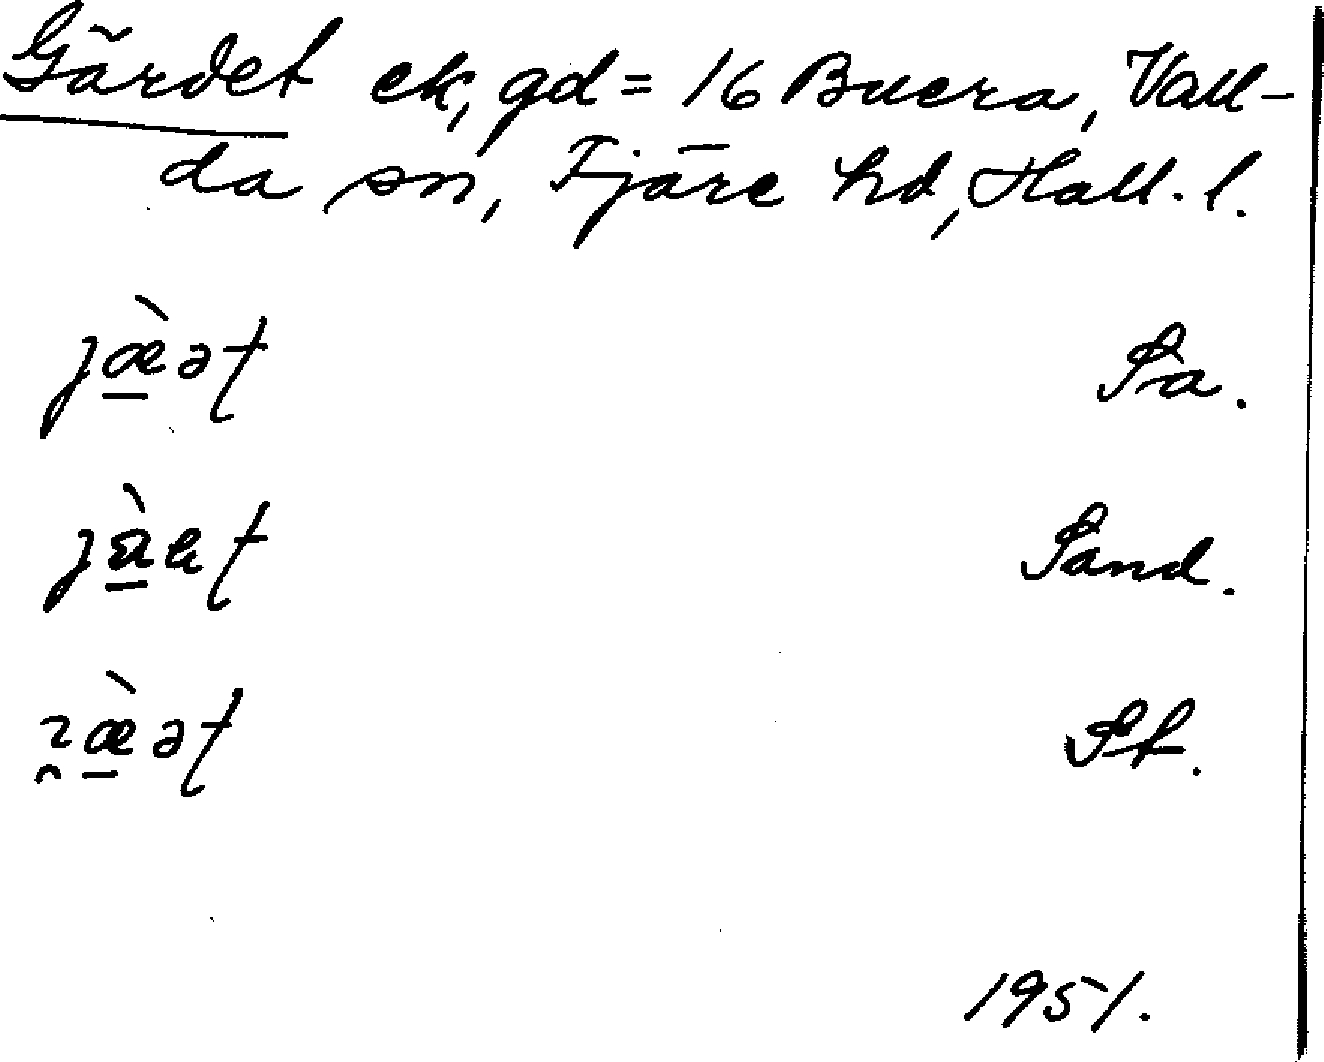 Gärdet ek, gd = 16 Buera, Vall-
da sn, Fjäre hd, Hall. l.
jæ̠̀əʈ Sa.
Sand.
St.
1951.